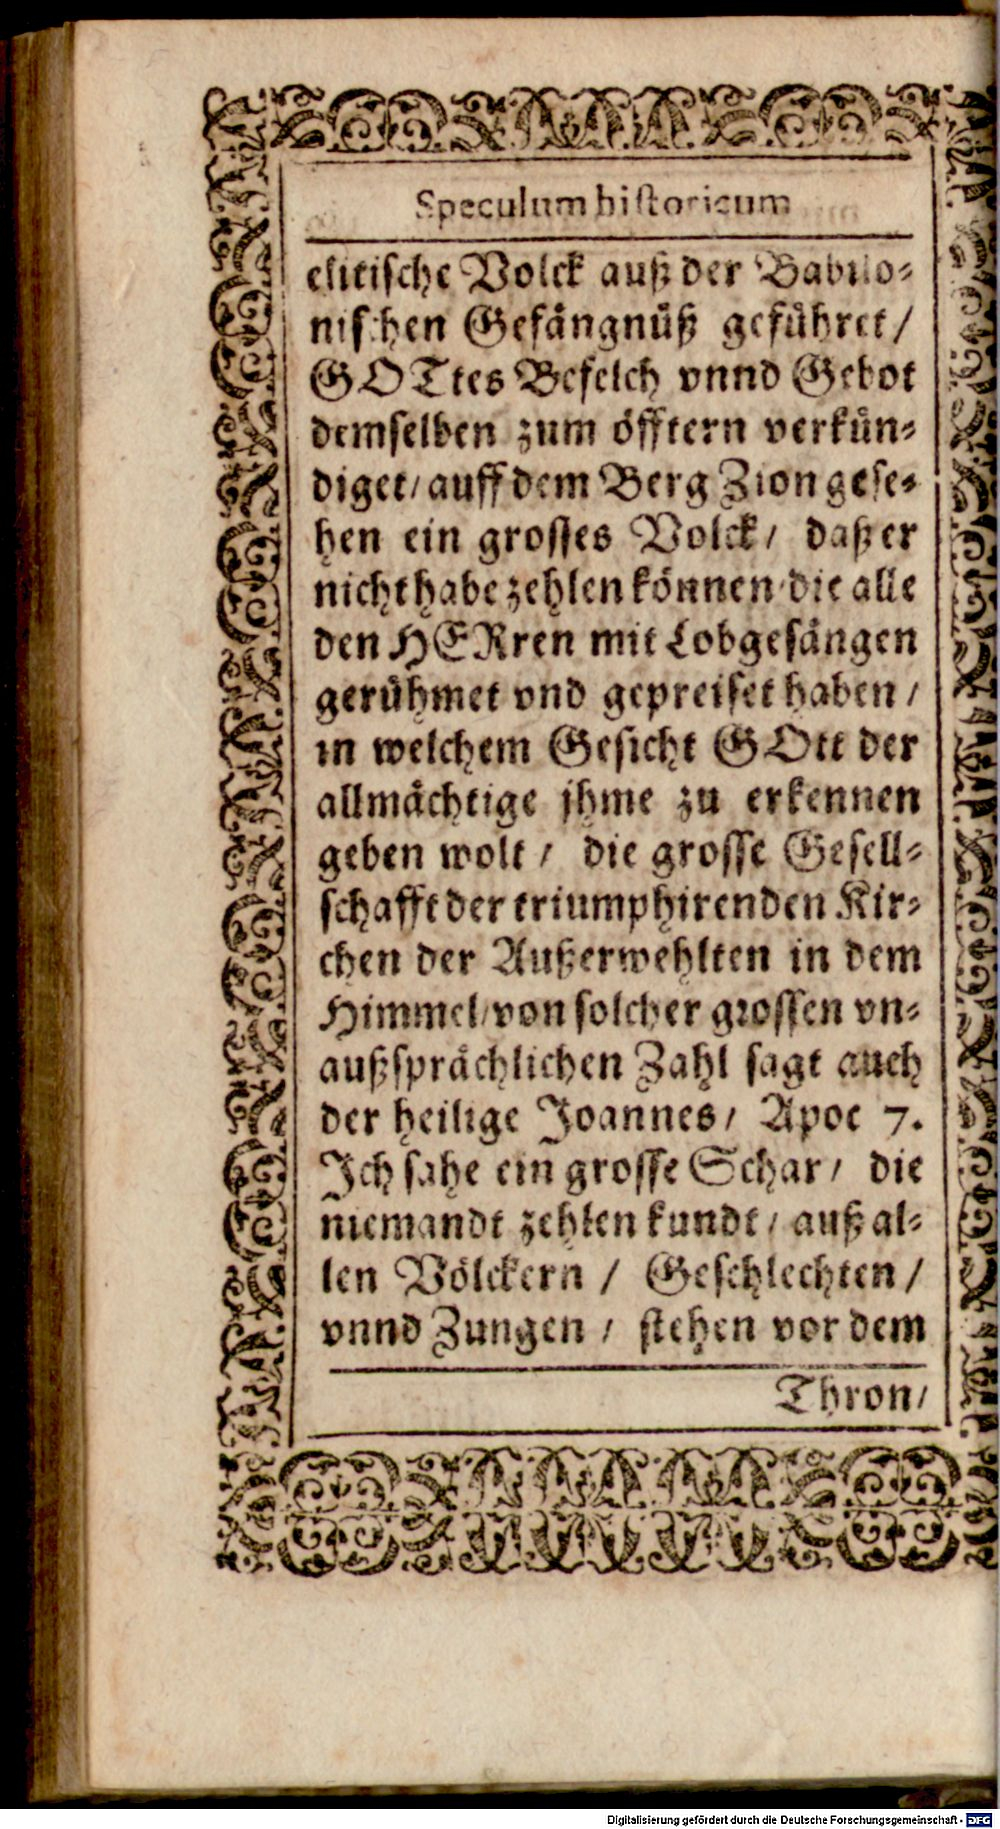 Speculum historicum
elitische Volck auß der Babilo-
nischen Gefängnüß geführet /
GOTtes Befelch vnnd Gebot
demselben zum öfftern verkün-
diget / auff dem Berg Zion gese-
hen ein grosses Volck / daß er
nicht habe zehlen können / die alle
den HERren mit Lobgesängen
gerühmet vnd gepreiset haben /
in welchem Gesicht GOtt der
allmächtige jhme zu erkennen
geben wolt / die grosse Gesell-
schafft der triumphirenden Kir-
chen der Außerwehlten in dem
Himmel / von solcher grossen vn-
außsprächlichen Zahl sagt auch
der heilige Joannes / Apoc 7.
Ich sahe ein grosse Schar / die
niemandt zehlen kundt / auß al-
len Völckern / Geschlechten /
vnnd Zungen / stehen vor dem
Thron /
Digitalisierung gefördert durch die Deutsche Forschungsgemeinschaft - DFG